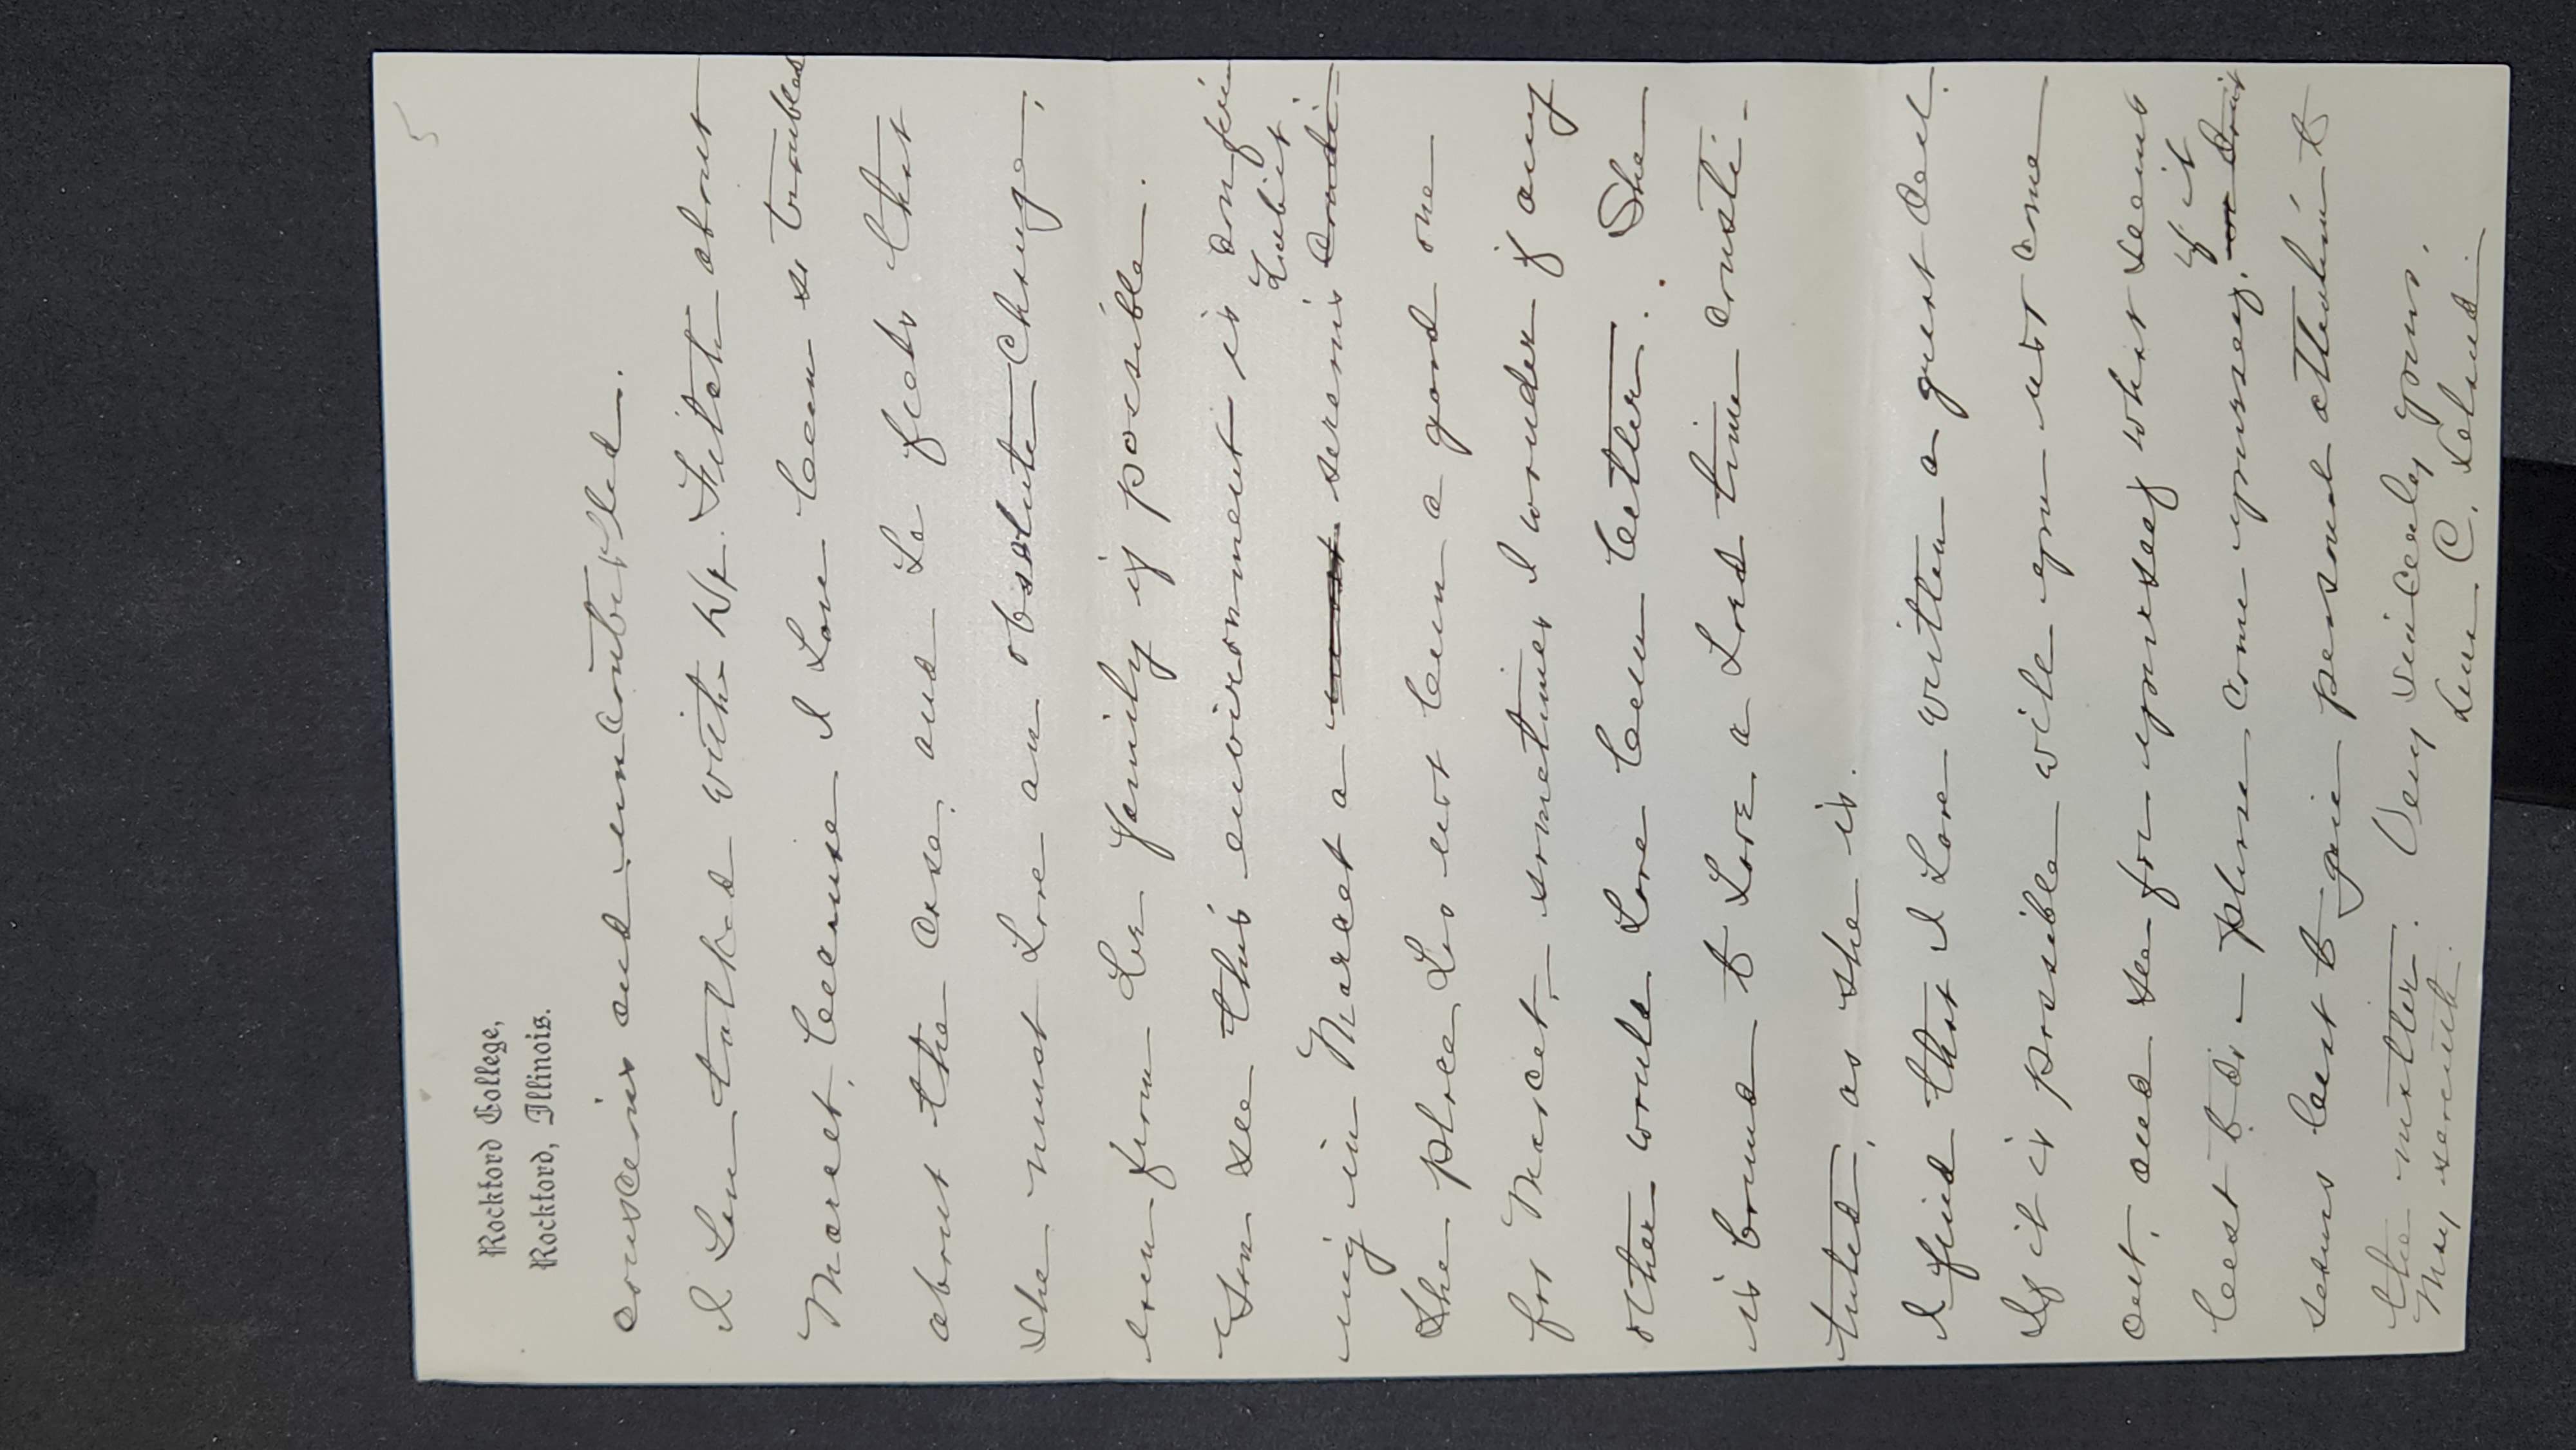 5
Rockford College,
Rockford, Illinois.
conscious and uncontrolled.
I have talked with Dr. Fitch about
Marcet, because I have been so troubled
about the case, and he feels that
she must have an absolute change,
even from her family if possible.
You see this environment is confir
habit
ming in Marcet a serious condi-
The place has not been a good one
for Marcet,- sometimes I wonder if any
other would have been better. She
is bound to have a hard time consti-
tuted, as she is.
I find that I have written a great deal.
If it is possible will you not come
out, and see for yourself what seems
if it
best to do - please come yourself,
seems best to give personal attention to
the matter. Very sincerely yours,
May seventh. C.